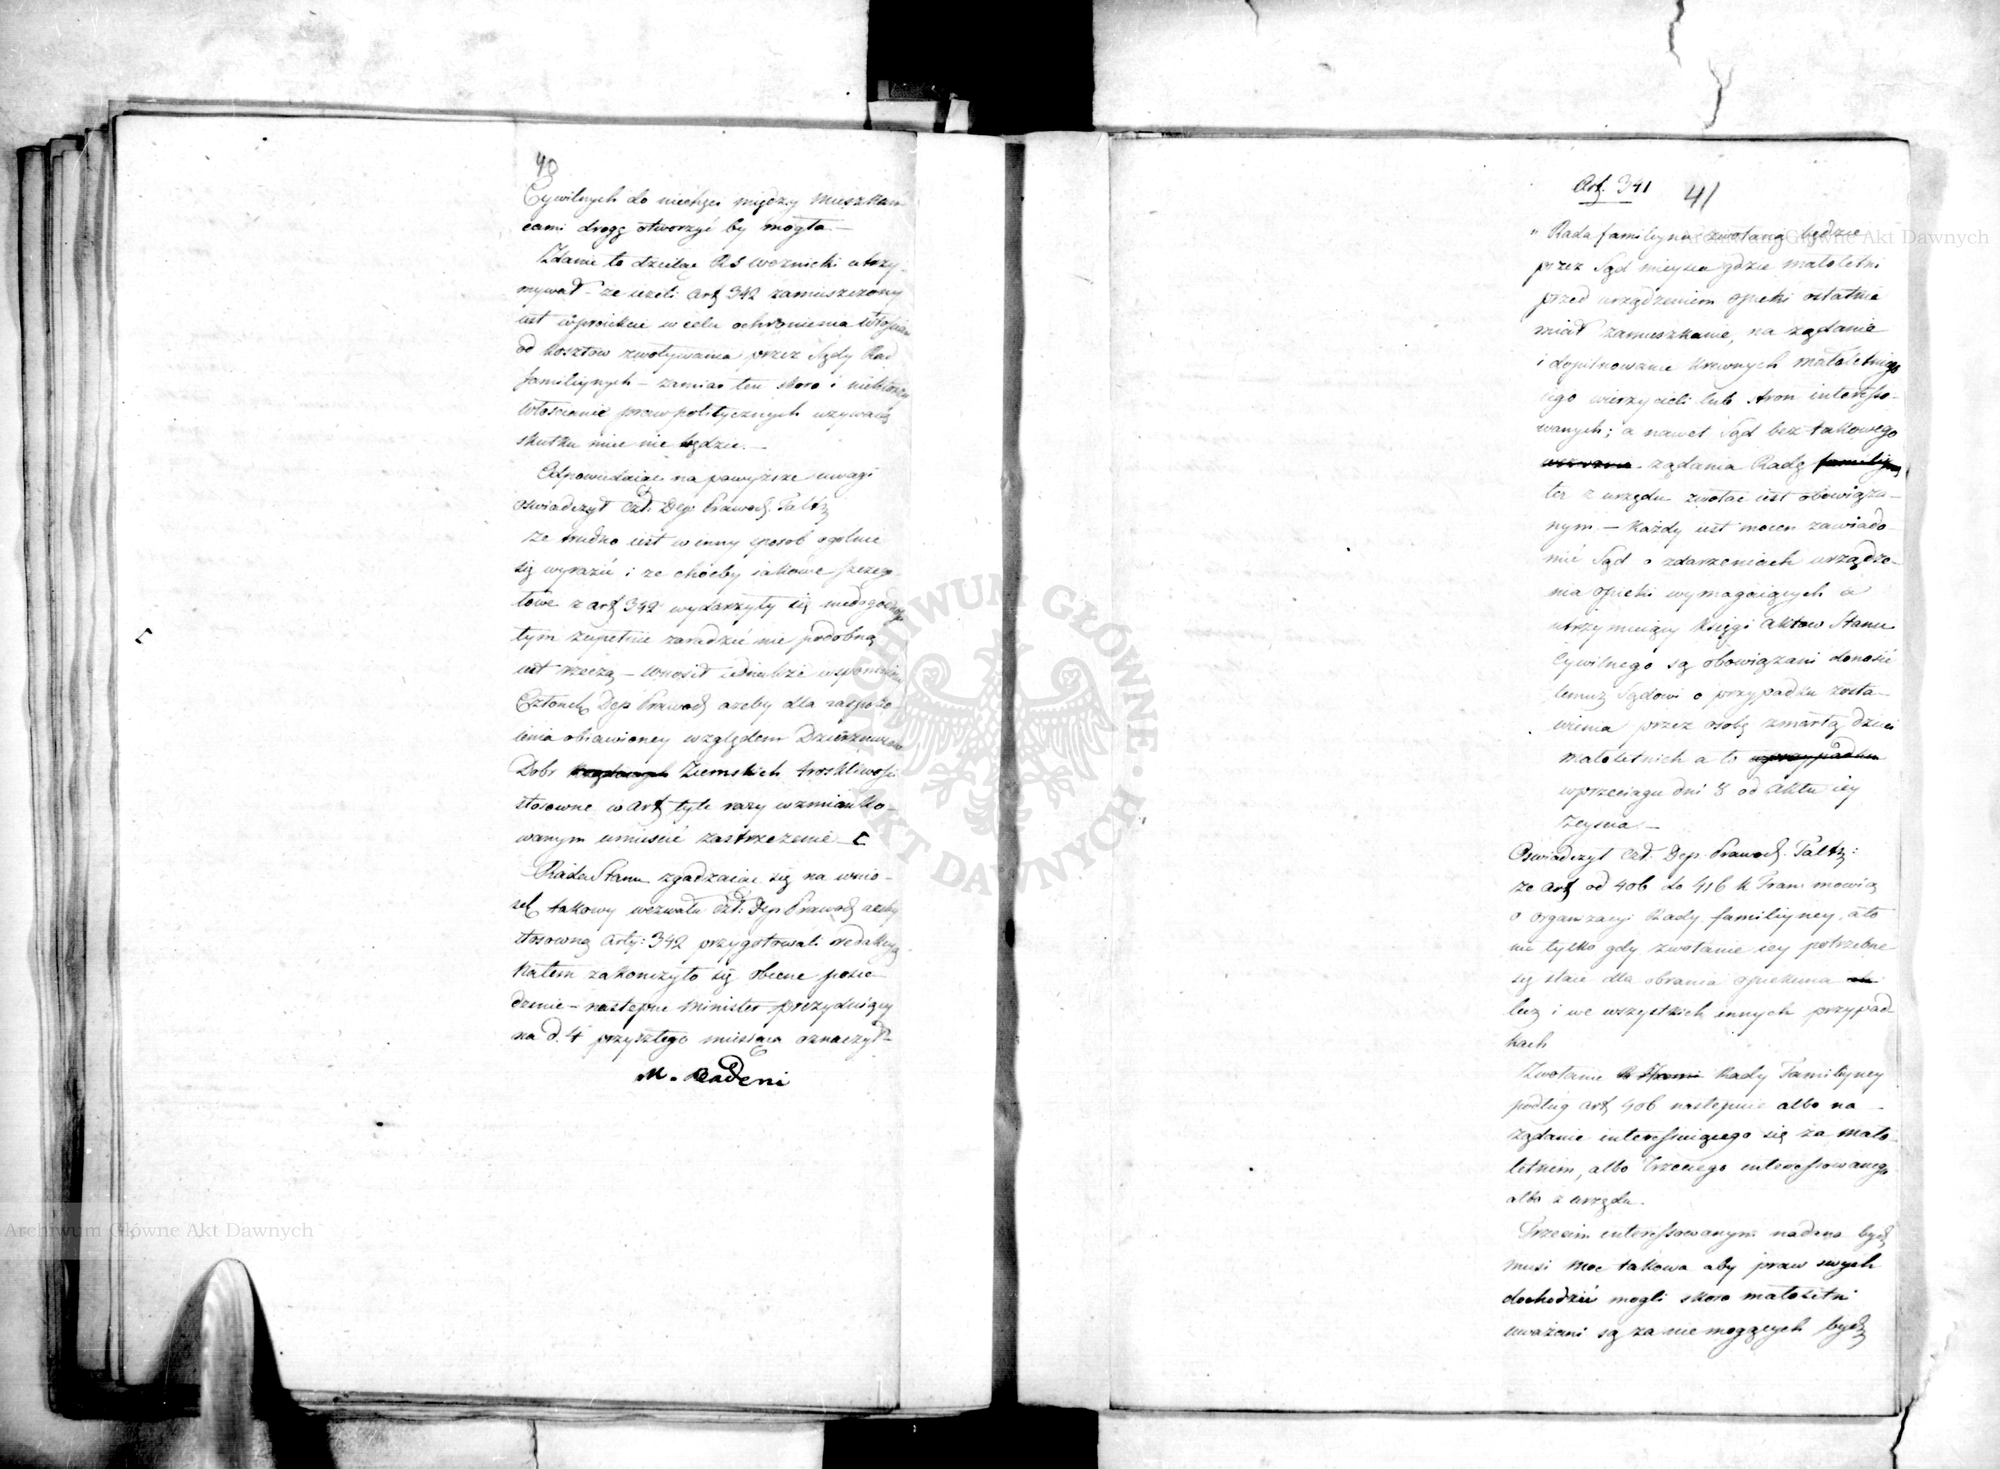 40
Cywilnych do niechęci między Mieszkań-
cami drogę otworzyć by mogła. —
Zdanie to dzieląc RS Woznicki utrzy-
mywał – że ieżeli Art 342 zamieszczony
iest w proiekcie w celu ochronienia Włościan
od kosztow zwoływania przez Sądy Rad
familiynych – zamiar ten skoro i niektorzy
Włościanie praw politycznych używaią
skutku miec nie będzie. —
Odpowiadaiąc na powyższe uwagi
oswiadczył Czł: Dep. Prawod.
że trudno iest w inny sposob ogolnie
się wyrazić i że choćby iakowe szczegó-
łowe z Art 342 wydarzyły się niedogodności
tym zupełnie zaradzić nie podobną
iest rzeczą – wnosił iednakże wspomniony
Członek Dep Prawod ażeby dla zaspoko-
ienia obiawioney względem Dzierżawcow
Dobr Ziemskich troskliwości
stosowne w Art tyle razy wzmianko-
wanym umieścić zastrzeżenie – [
Rada Stanu zgadzaiąc się na wnio-
sek takowy wezwała Czł: Dep Prawod ażeby
stosowną Arty: 342 przygotował redakcyą
Zatem zakończyło się obecne posie-
dzenie – następne Minister prezyduiący
na d. 4 przyszłego miesiąca oznaczył –
M. Badeni
[
Art. 341
41
" Rada familiyna zwołaną będzie
przez Sąd mieysca gdzie małoletni
przed urządzeniem opieki ostatnie
miał zamieszkanie, na żądanie
i dopilnowanie krewnych małoletniego
iego wierzycieli lub stron interesso-
wanych; a nawet Sąd bez takowego
żądania Radę familiyną
też z urzędu zwołać iest obowiąza-
nym. – Każdy iest mocen zawiado-
mić Sąd o zdarzeniach urządze-
nia opieki wymagaiących a
utrzymuiący Księgi Aktow Stanu
Cywilnego są obowiązani donosić
temuż Sądowi o przypadku zosta-
wienia przez osobę zmarłą dzieci
małoletnich a to w przypadku
w przeciągu dni 8 od Aktu iey
zeyscia –
Oswiadczył Czł. Dep. Prawod.
że Art od 406 do 416 K Fran: mowią
o organizacyi Rady familiyney, a to
nie tylko gdy zwołanie iey potrzebne
się staie dla obrania opiekuna
lecz i we wszystkich innych przypad
kach
Zwołanie Rady Familiyney
podług Art 406 nastepuie albo na –
żądanie interessuiącego się za mało-
letnim, albo trzeciego interessowanego
albo z urzędu.
Trzecim interessowanym nadana bydź
musi moc takowa aby praw swych
dochodzić mogli skoro małoletni
uważani są za nie mogących bydź
Archiwum Główne Akt Dawnych
Archiwum Główne Akt Dawnych
ARCHIWUM GŁÓWNE
AKT DAWNYCH